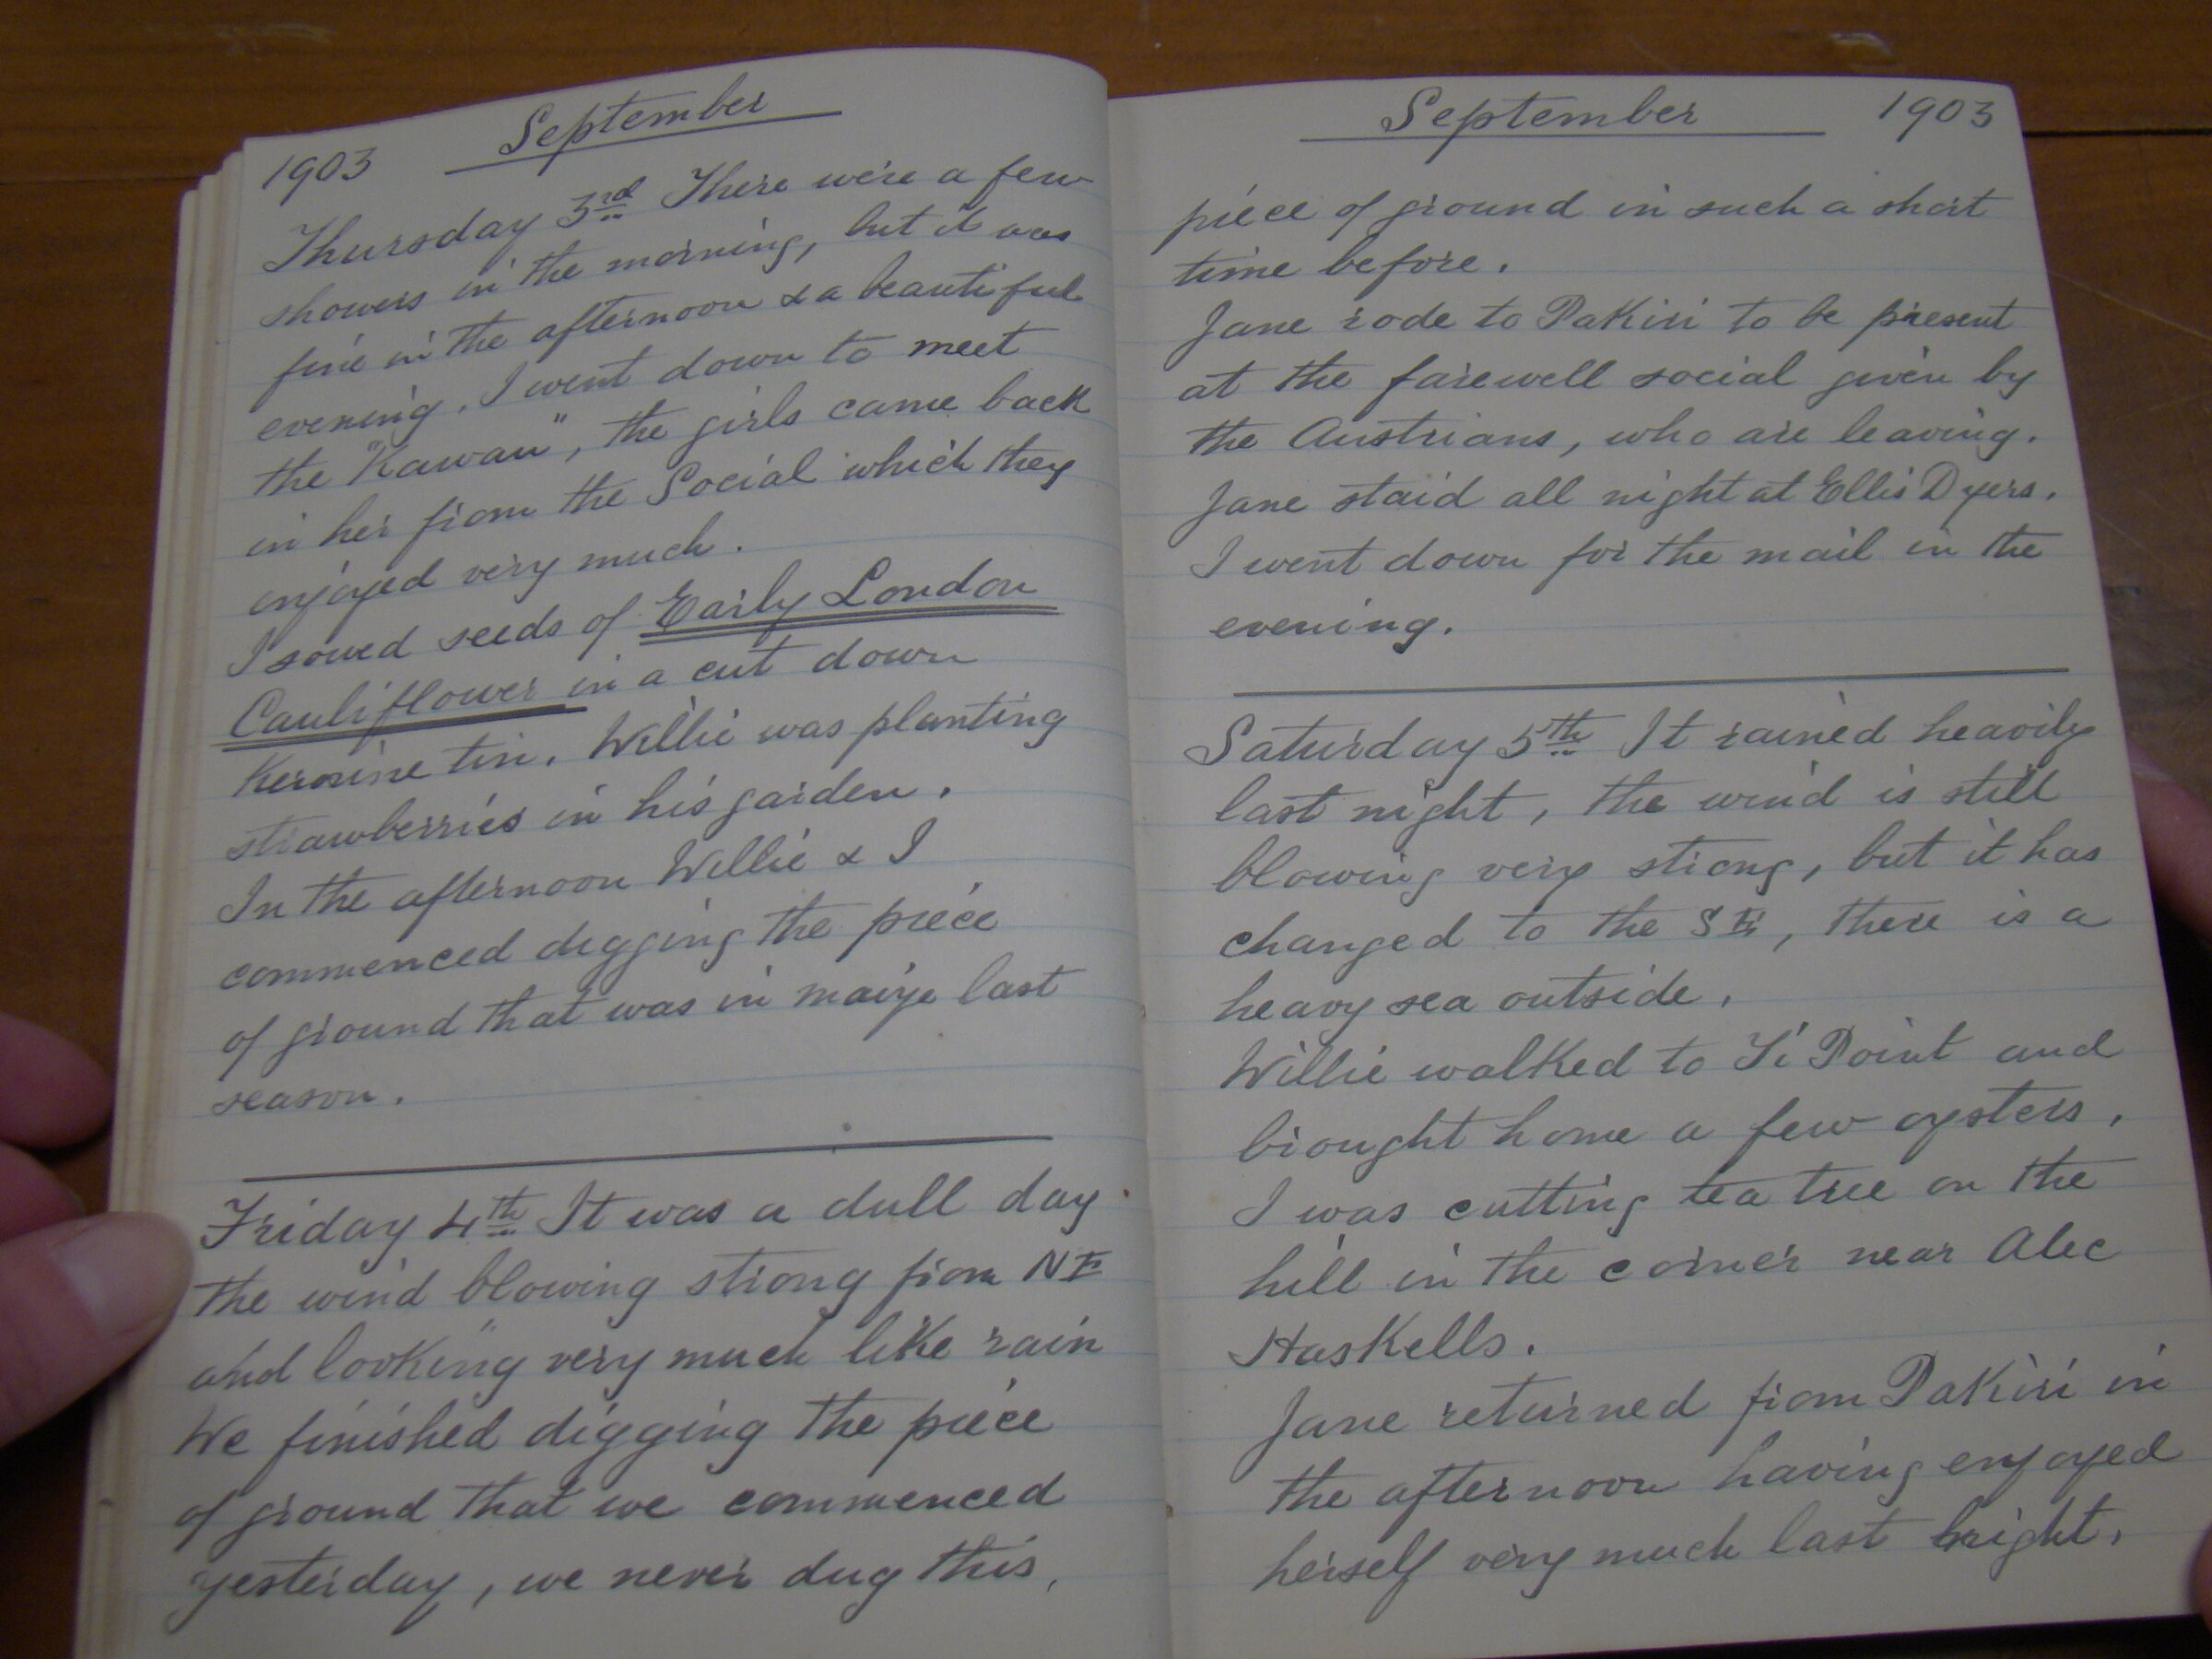 1903 September
Thursday 3rd There were a few
showers in the morning, but it was
fine in the afternoon & a beautiful
evening. I went down to meet
the "Kawau", the girls came back
in her from the Social which they
enjoyed very much.
I sowed seeds of Early London
Cauliflower in a cut down
Kerosine tin. Willie was planting
strawberries in his garden.
In the afternoon Willie & I
commenced digging the piece
of ground that was in maize last
season.
Friday 4th It was a dull day
the wind blowing strong from NE
and looking very much like rain
We finished digging the piece
of ground that we commenced
yesterday, we never dug this,
September 1903
piece of ground in such a short
time before.
Jane rode to Pakiri to be present
at the farewell social given by
the Austrians, who are leaving.
Jane staid all night at Ellis Dyers.
I went down for the mail in the
evening.
Saturday 5th It rained heavily
last night, the wind is still
blowing very strong, but it has
changed to the SE, there is a
heavy sea outside.
Willie walked to Ti Point and
brought home a few oysters.
I was cutting tea tree on the
hill in the corner near Alec
Haskells.
Jane returned from Pakiri in
the afternoon having enjoyed
herself very much last night.